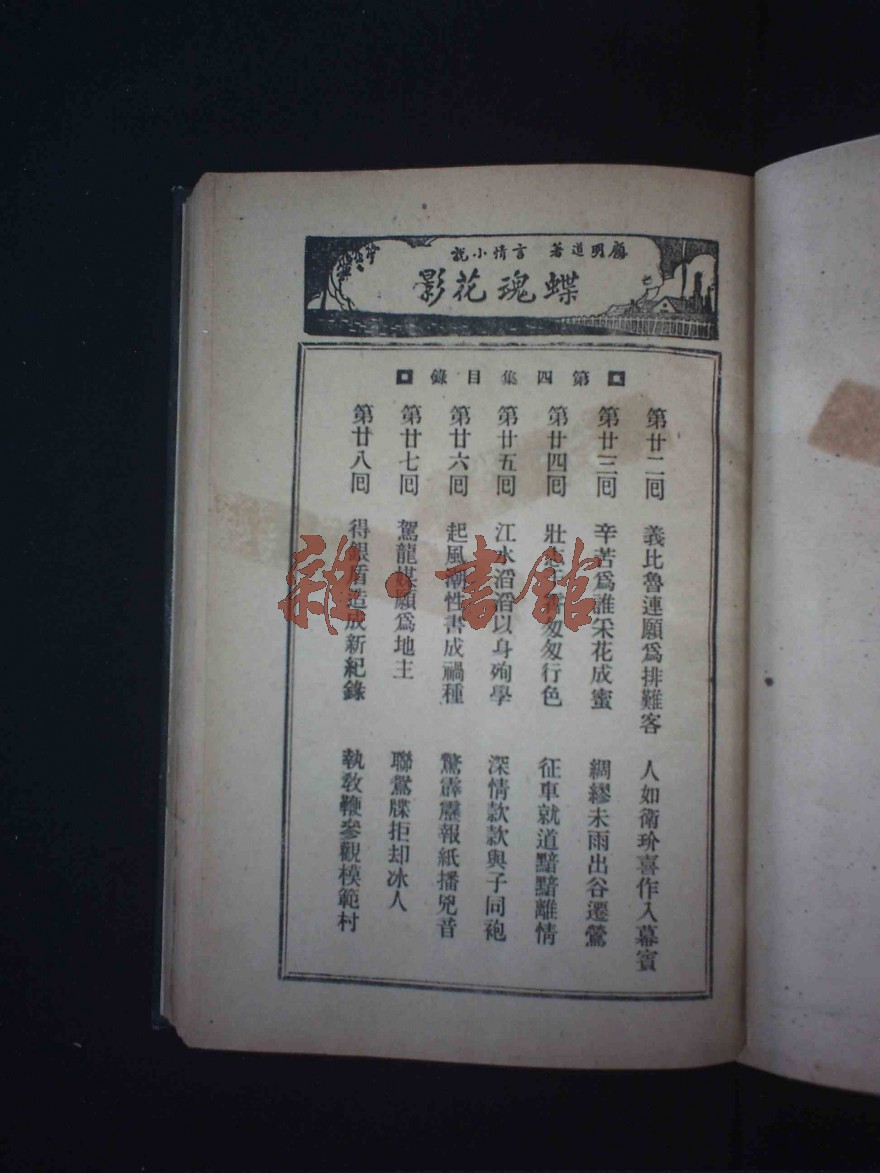 顧明道著 言情小說
蝶魂花影
第四集目錄
第廿二囘 義比魯連願爲排難客 人如衛玠喜作入幕賓
第廿三囘 辛苦爲誰采花成蜜 綢繆未雨出谷遷鶯
第廿四囘 壯志 匆匆行色 征車就道黯黯離情
第廿五囘 江水滔滔以身殉學 深情款款與子同袍
第廿六囘 起風潮性書成禍種 驚霹靂報紙播兇音
第廿七囘 駕龍媒願爲地主 聯鴛牒拒却冰人
第廿八囘 得銀盾造成新紀錄 執教鞭參觀模範村
雜·書館